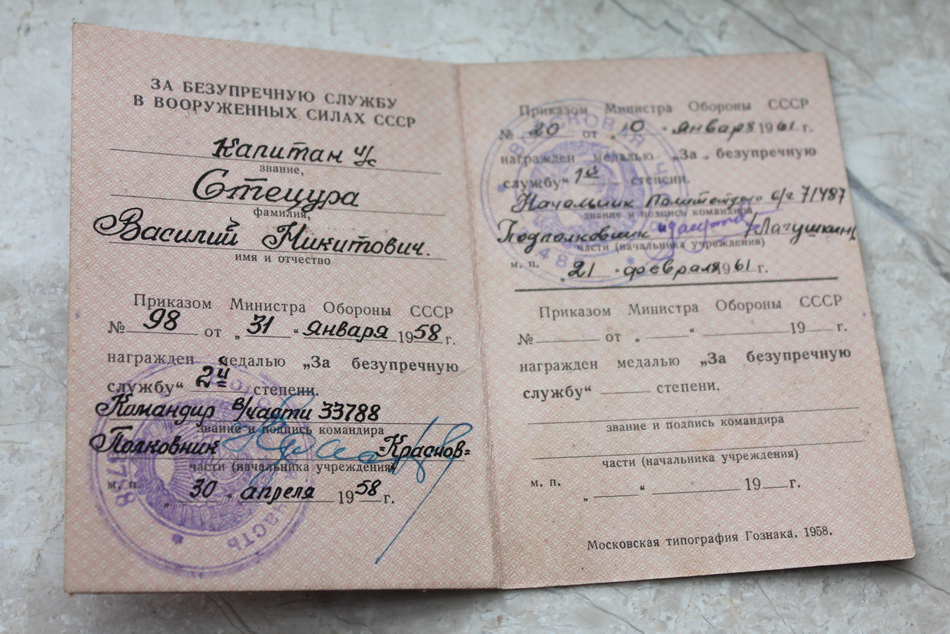 ЗА БЕЗУПРЕЧНУЮ СЛУЖБУ
В ВООРУЖЕННЫХ СИЛАХ СССР
Капитан
звание,
Стецура
фамилия,
Василий Никитович.
имя и отчество
Приказом Министра Обороны СССР
№ 98 от „31“ января 1958 г.
награжден медалью „За безупречную
службу“ 2й степени.
Командир в/части 33788
звание и подпись командира
Полковник =Краснов=
части (начальника учреждения)
м. п.
„30„ апреля 1958 г.
Приказом Министра Обороны СССР
№ 20 от „10„ января 1961 г.
награжден медалью „За„ безупречную
службу“ 1й степени.
Начальник 71487
звание и подпись командира
Подполковник /Лагушкин/
части (начальника учреждения)
м. п.
„21„ февраля 1961 г.
Приказом Министра Обороны СССР
№ от „ “ 19 г.
награжден медалью „За безупречную
службу“ степени.
звание и подпись командира
части (начальника учреждения)
м. п.
„ “ 19 г.
Московская типография Гознака. 1958.